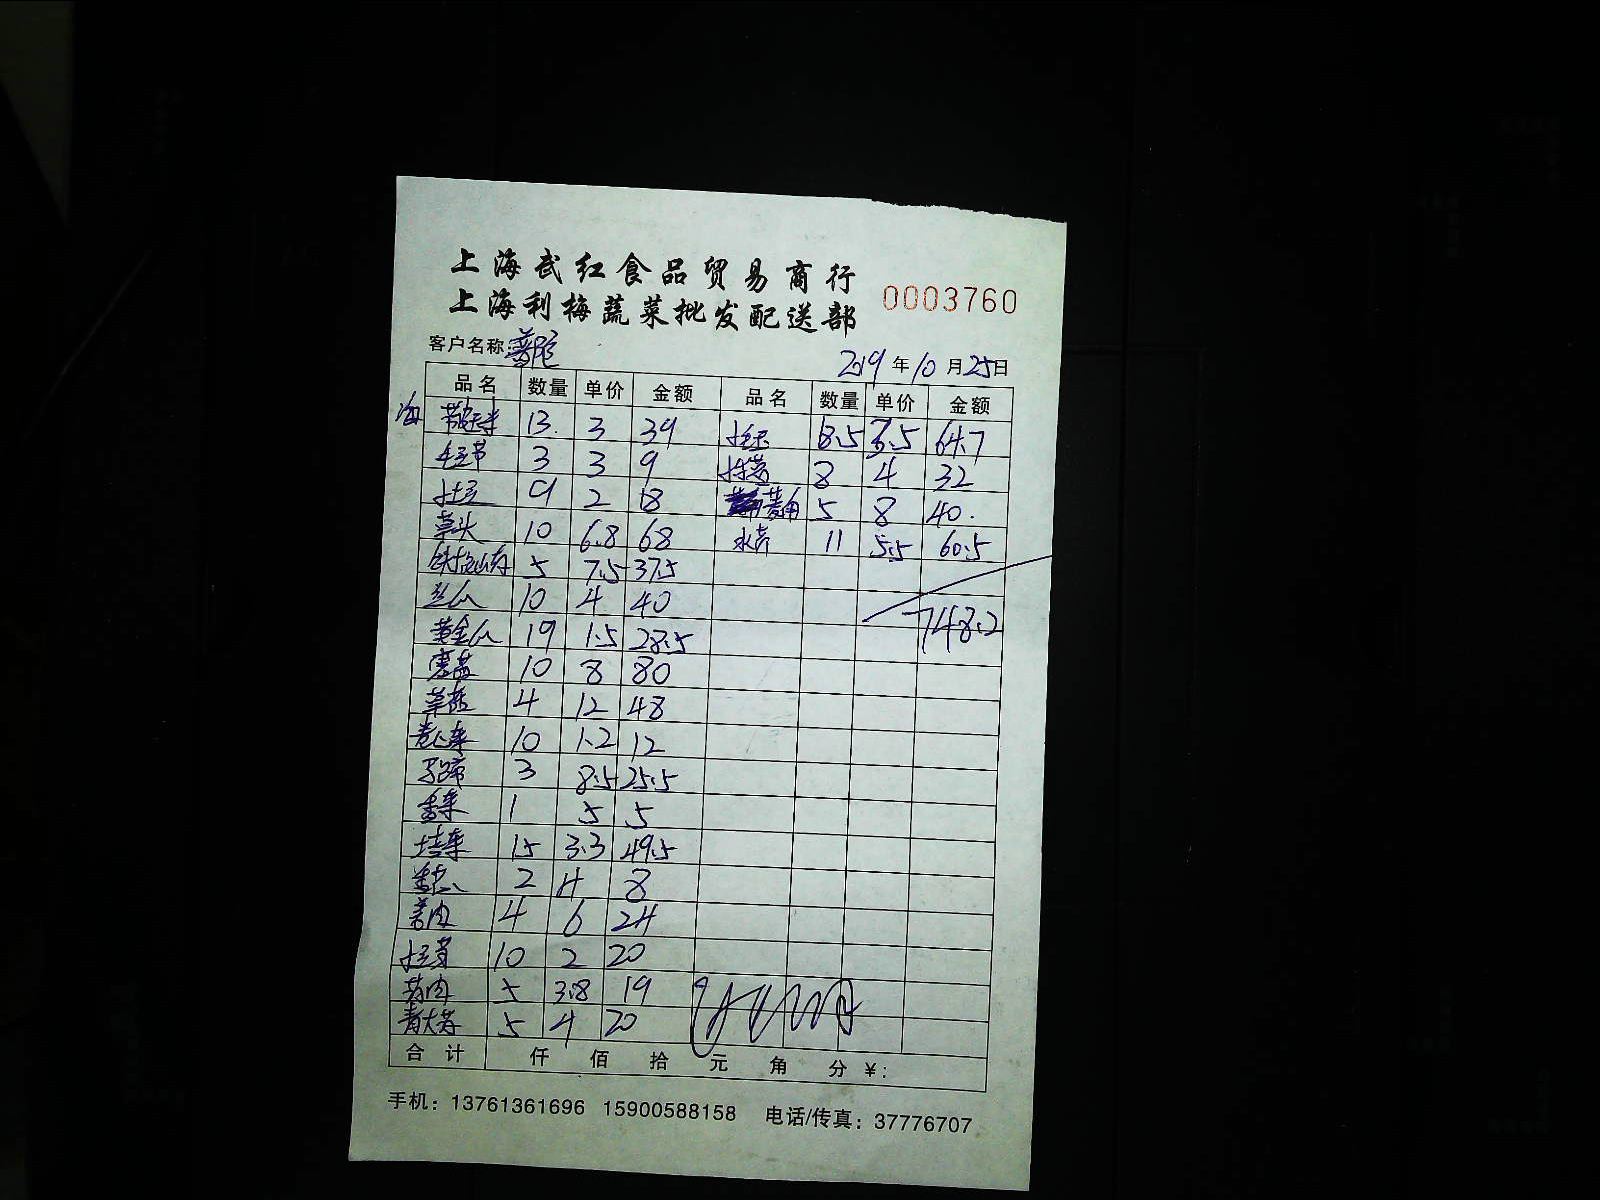 上海武红食品贸易商行
上海利梅蔬菜批发配送部
0003760
客户名称:普陀
2019年10月25日
品名 数量 单价 金额 品名 数量 单价 金额
13 3 39 8.5 64.7
3 3 9 8 4 32
9 2 18 5 8 40.
草头 10 6.8 68 水芹 11 5.5 60.5
铁棍山药 5 7.5 37.5
丝瓜 10 4 40
748.2
黄金瓜 19 1.5 28.5
10 8 80
草菇 4 12 48
卷心菜 10 1.2 12
马蹄 3 8.5 25.5
香菜 1 5 5
15 3.3 49.5
2 4 8
4 6 24
10 2 20
5 3.8 19
5 4 20
合计 仟 佰 拾 元 角 分 ¥:
手机: 13761361696 15900588158 电话/传真: 37776707